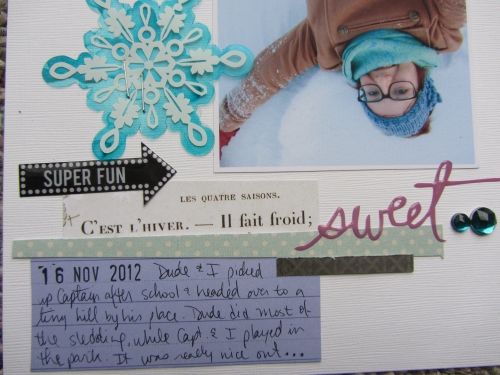 SUPER FUN
LES QUATRE SAISONS.
C'EST L'HIVER. — Il fait froid;
sweet
16 NOV 2012 Dude & I picked
up Captain after school & headed over to a
tiny hill by his place. Dude did most of
the sledding, while Capt. & I played in
the park. It was really nice out...